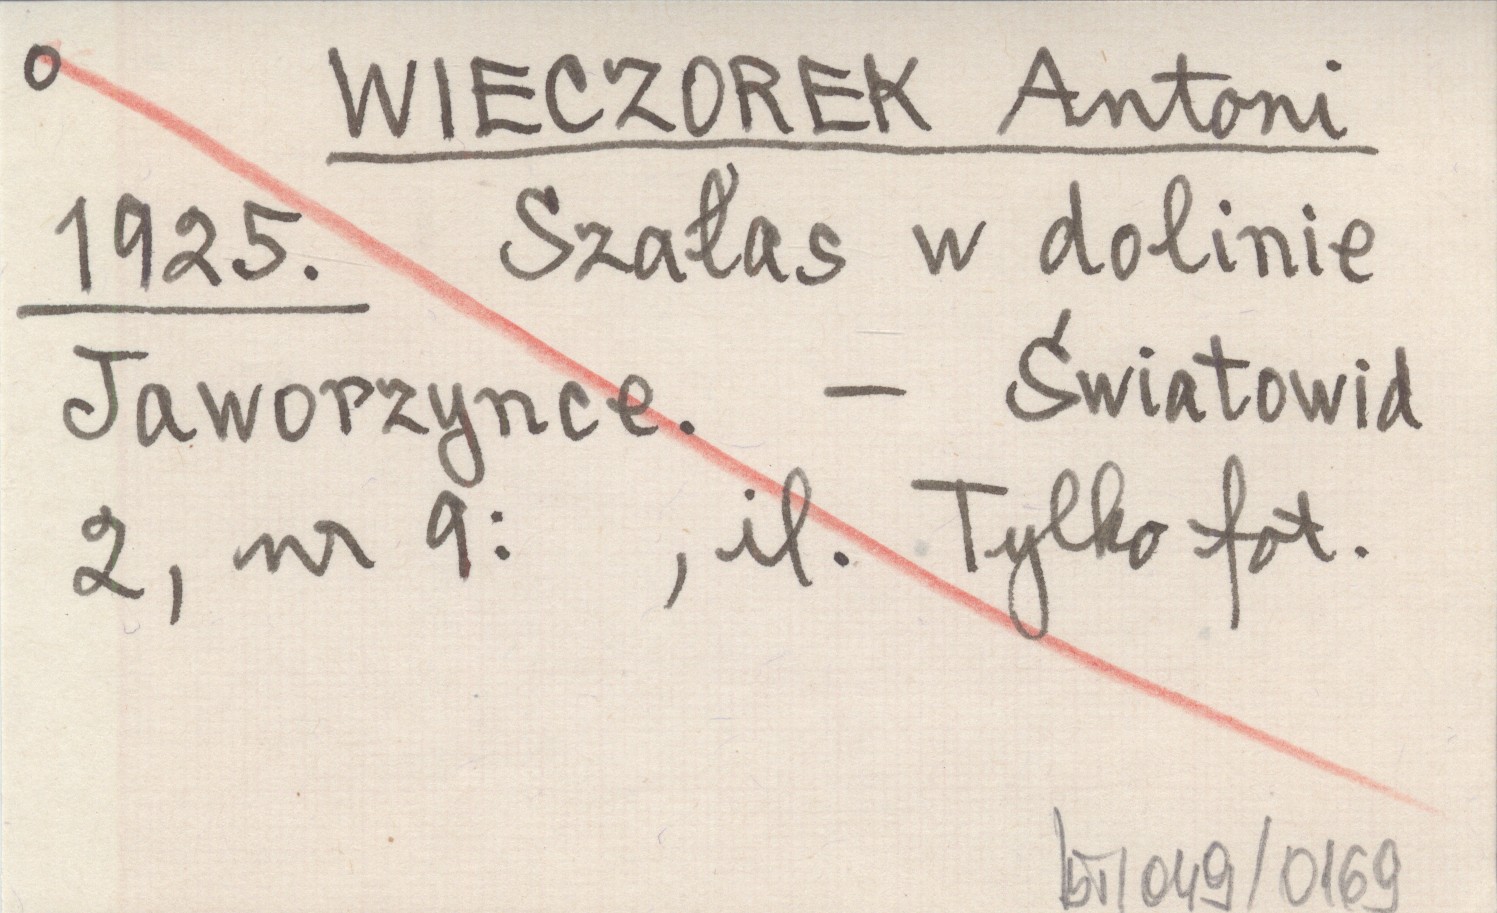 o WIECZOREK Antoni
1925. Szałas w dolinie
Jaworzynce. — Światowid
2, nr 9: , il. Tylko fot.
049/0169